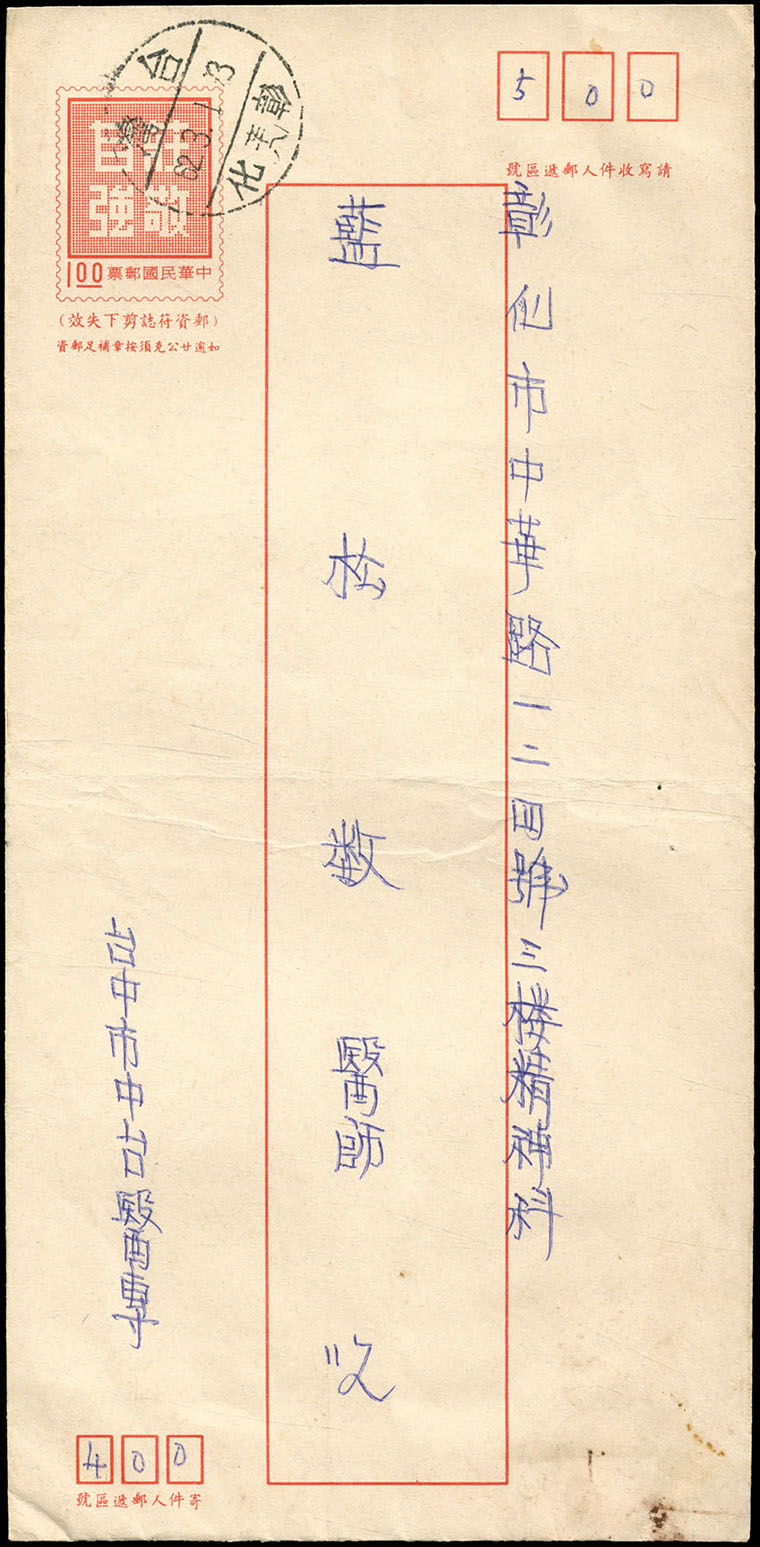 500
請寫收件人郵遞區號
彰化市中華路一二四號三樓精神科
藍松数醫師收
台灣
62.3.1
彰化
莊敬自強
中華民國郵票 1.00
(郵資符誌剪下失效)
如逾廿公克須按章補足郵資
台中市中台醫專
400
寄件人郵遞區號